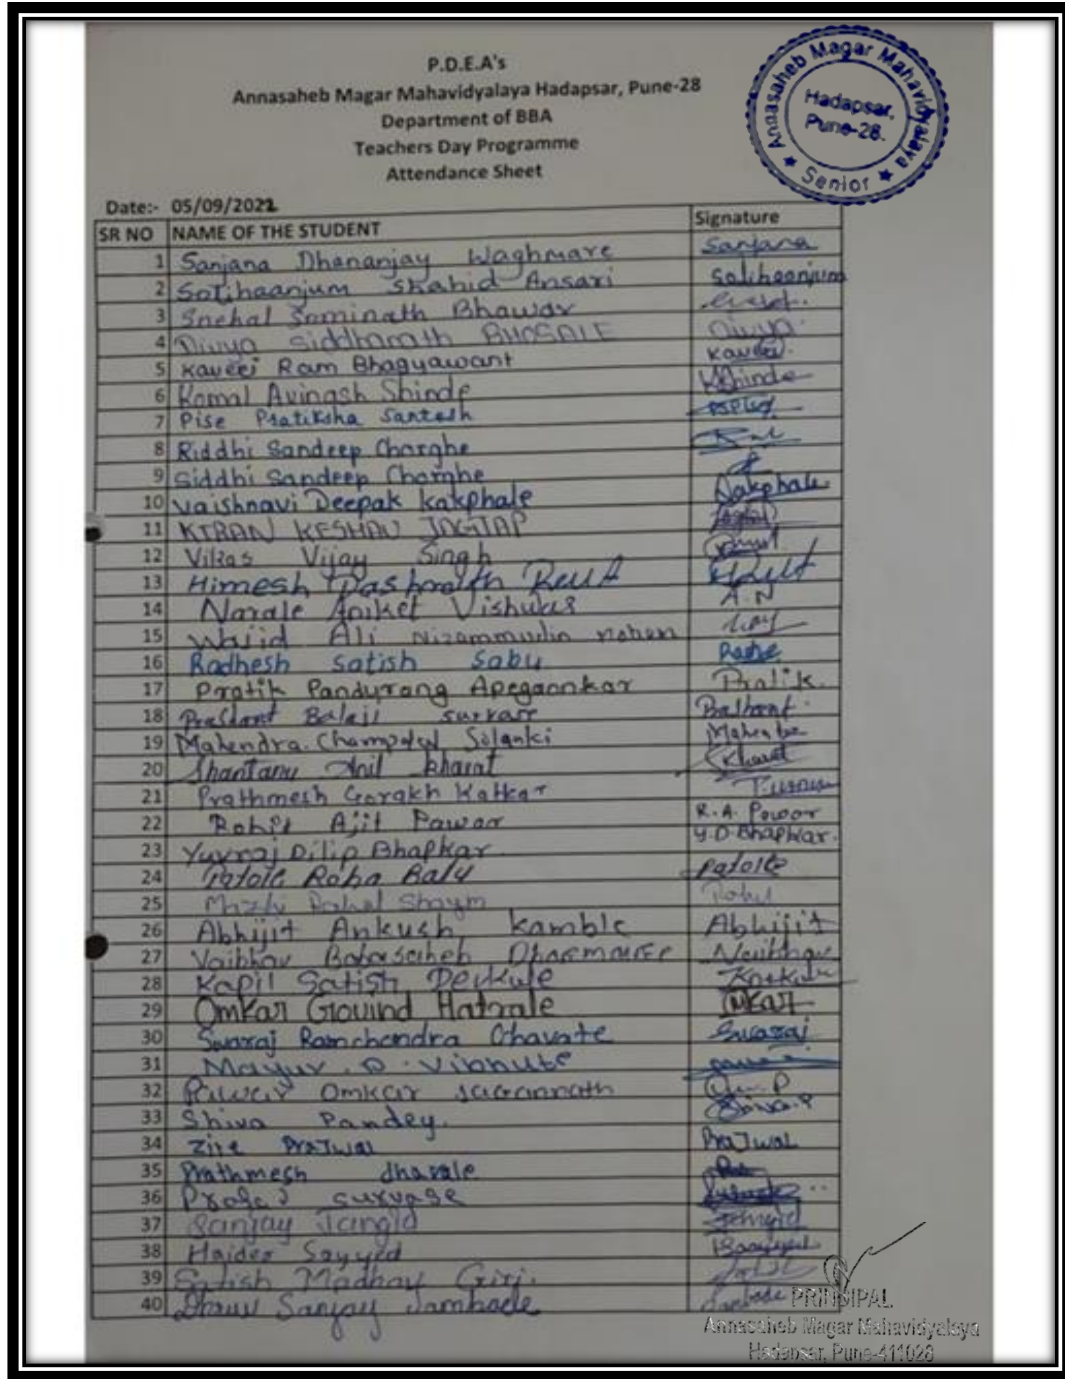 P.D.E.A's
Annasaheb Magar Mahavidyalaya Hadapsar, Pune-28
Department of BBA
Teachers Day Programme
Attendance Sheet
Annasaheb Magar Mahavidyalaya
Hadapsar,
Pune-28.
★ Senior ★
Date:- 05/09/2022
SR NO NAME OF THE STUDENT Signature
1 Sanjana Dhananjay Waghmare Sanjana
2 Solihaanjum Shahid Ansari Solihaanjum
3 Snehal Sominath Bhawar
4 Divya Siddharath BHOSALE Divya
5 Kaveri Ram Bhagyawant Kaveri
6 Komal Avinash Shinde KShinde
7 Pise Pratiksha Santosh
8 Riddhi Sandeep Charghe
9 Siddhi Sandeep Charghe
10 Vaishnavi Deepak kakphale
11 KIRAN KESHAV JAGTAP
12 Vikas Vijay Singh
13 Himesh Dashrath
14 Narale Aniket Vishwas A.N
15 Wajid Ali Nizammudin
16 Radhesh Satish Sabu
17 Pratik Pandurang Apegaonkar Pratik.
18 Prashant Balaji Prashant
19 Mahendra. Solanki
20 Shantanu Anil kharat Kharat
21 Prathmesh Gorakh Katkar
22 Rohit Ajit Pawar R.A. Pawar
23 Yuvraj Dilip Bhapkar Y.D.Bhapkar.
24 Patole Baly Patole
25 Shaym
26 Abhijit Ankush Kamble Abhijit
27 Vaibhav Babasaheb Vaibhav
28 Kapil Satish
29 Omkar Govind Omkar
30 Swaraj Ramchandra Chavate Swaraj
31 Mayur . D . Vibhute
32 Pawar Omkar Jagannath Om.P
33 Shiva Pandey. Shiva.P
34 Prajwal Prajwal
35 Prathmesh dhavale
36 survase
37 Sanjay Jangid Jangid
38 Haider Sayyed
39 Satish Madhav Giri.
40 Dhruv Sanjay Jambhade
PRINCIPAL
Annasaheb Magar Mahavidyalaya
Hadapsar, Pune-411028